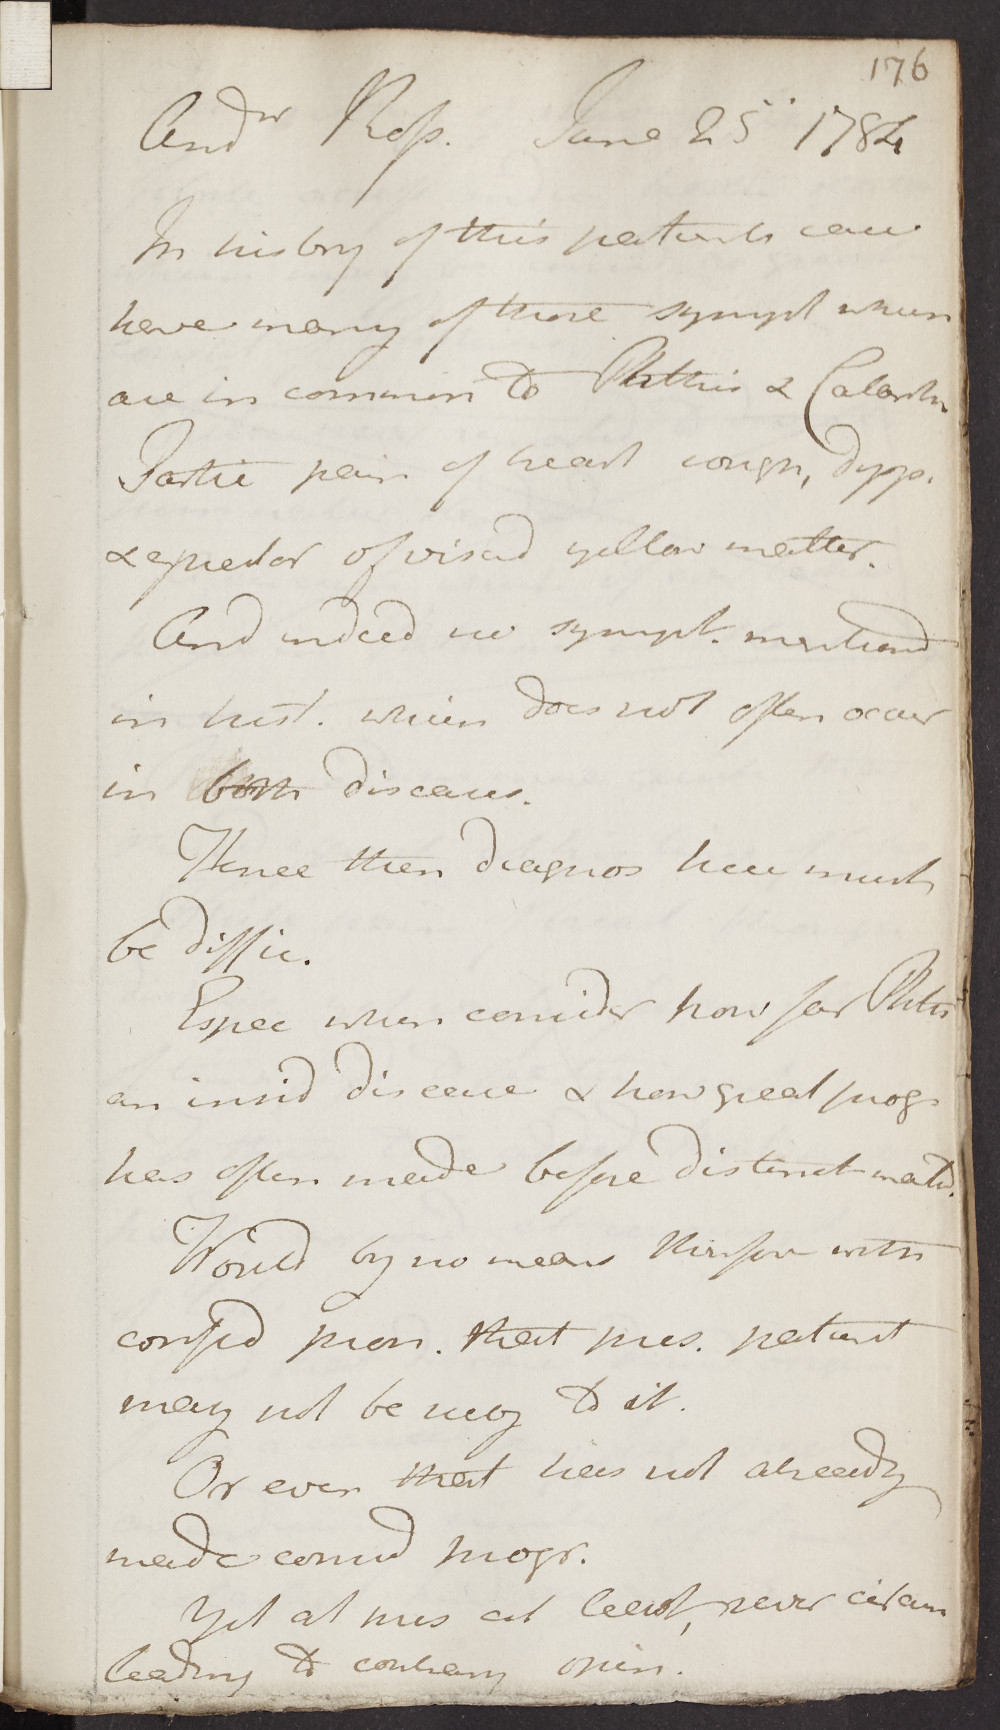 176
Andw Ross. June 25 1784
In history of this patients case
have many of those sympt which
are in common to Phthis & Catarrh
Partic pain of breast cough, dysp.
& expector of viscid yellow matter.
And indeed no sympt. mentiond
in hist. which does not often occur
in both diseases.
Hence then diagnos here must
be diffic.
Espec when consider how far Phthis
an insid disease & how great progr
has often made before distinct mark'd.
Would by no means therefore with
confid pron. that pres. patient
may not be to it.
Or even that has not already
made consid progr.
Yet at pres at least, circum
leading to contrary opin.